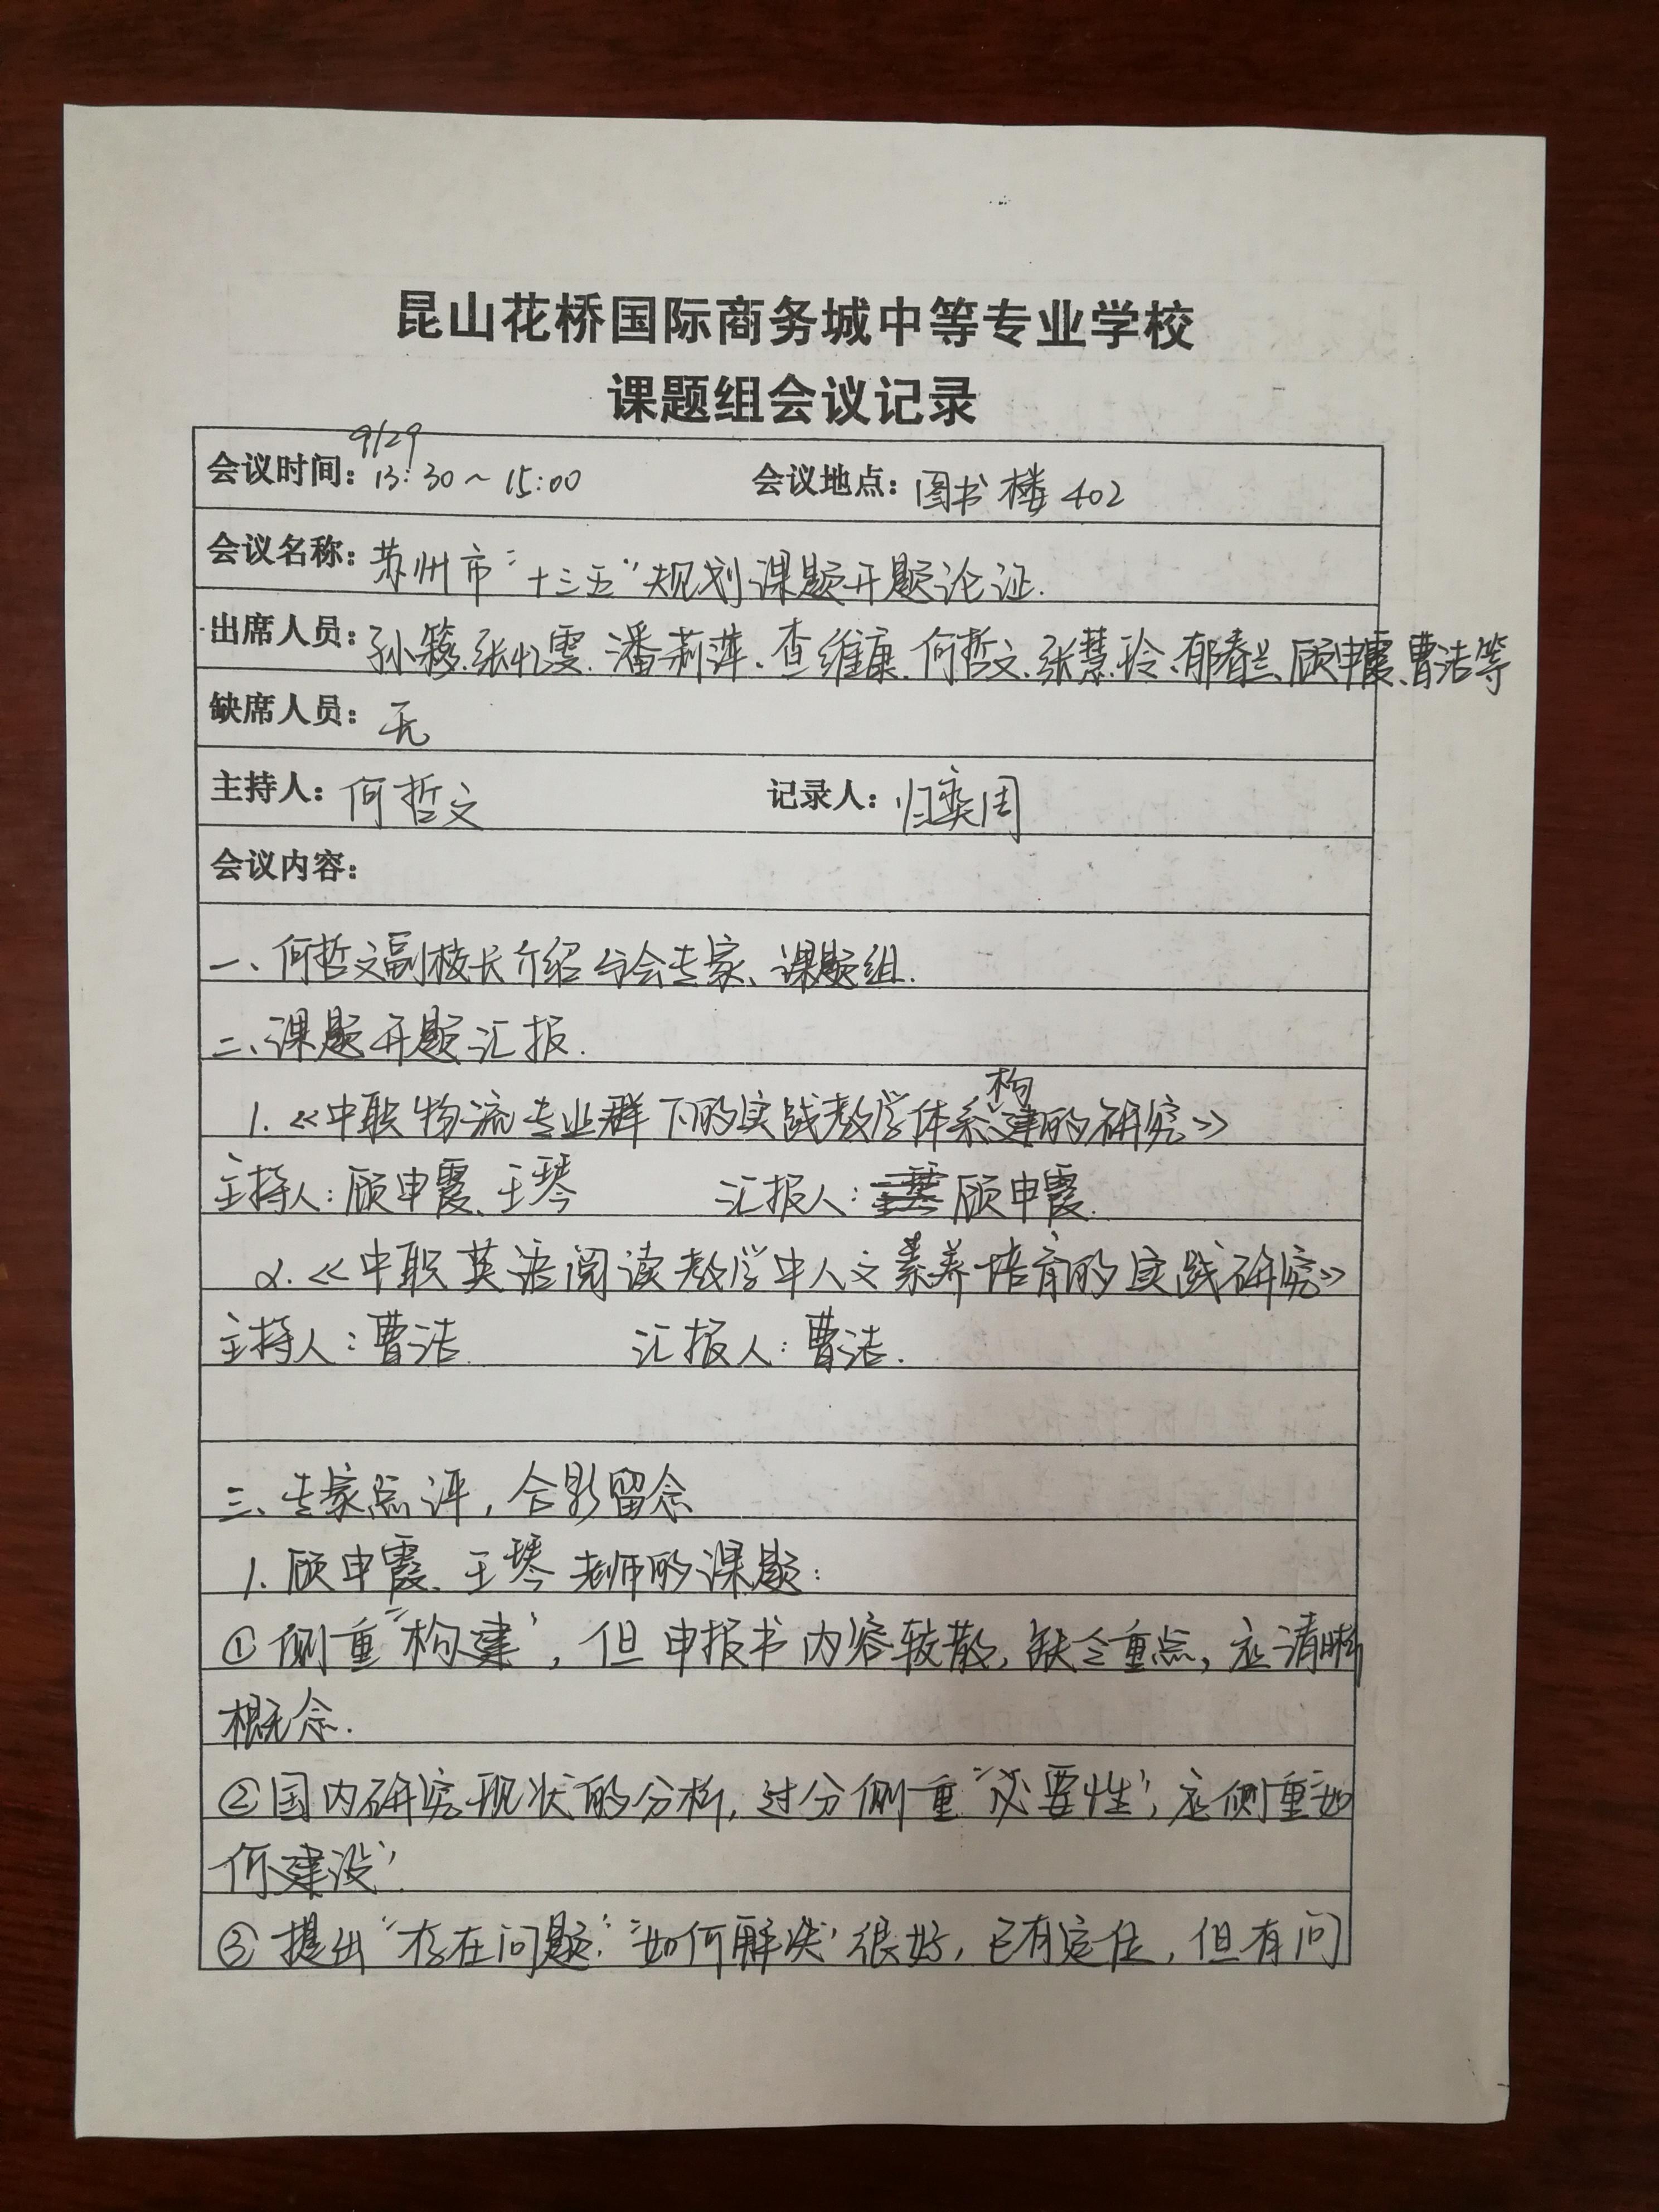 昆山花桥国际商务城中等专业学校
课题组会议记录
9/29
会议时间：13:30～15:00 会议地点：图书楼402
会议名称：苏州市“十三五”规划课题开题论证.
出席人员：孙簃、张忆雯、潘莉萍、查维康、何哲文、张慧玲、郁春兰、顾申霞、曹洁等
缺席人员：无
主持人：何哲文 记录人：归奕周
会议内容：
一、何哲文副校长介绍与会专家、课题组.
二、课题开题汇报.
1.《中职物流专业群下的实践教学体系构建的研究》
主持人：顾申霞、王琴 汇报人：顾申霞.
2.《中职英语阅读教学中人文素养培育的实践研究》
主持人：曹洁 汇报人：曹洁.
三、专家点评，合影留念
1.顾申霞、王琴老师的课题：
①侧重“构建”，但申报书内容较散，缺乏重点，应清晰
概念.
②国内研究现状的分析，过分侧重“必要性”，应侧重“如
何建设”
③提出“存在问题”“如何解决”很好，已有定位，但有问